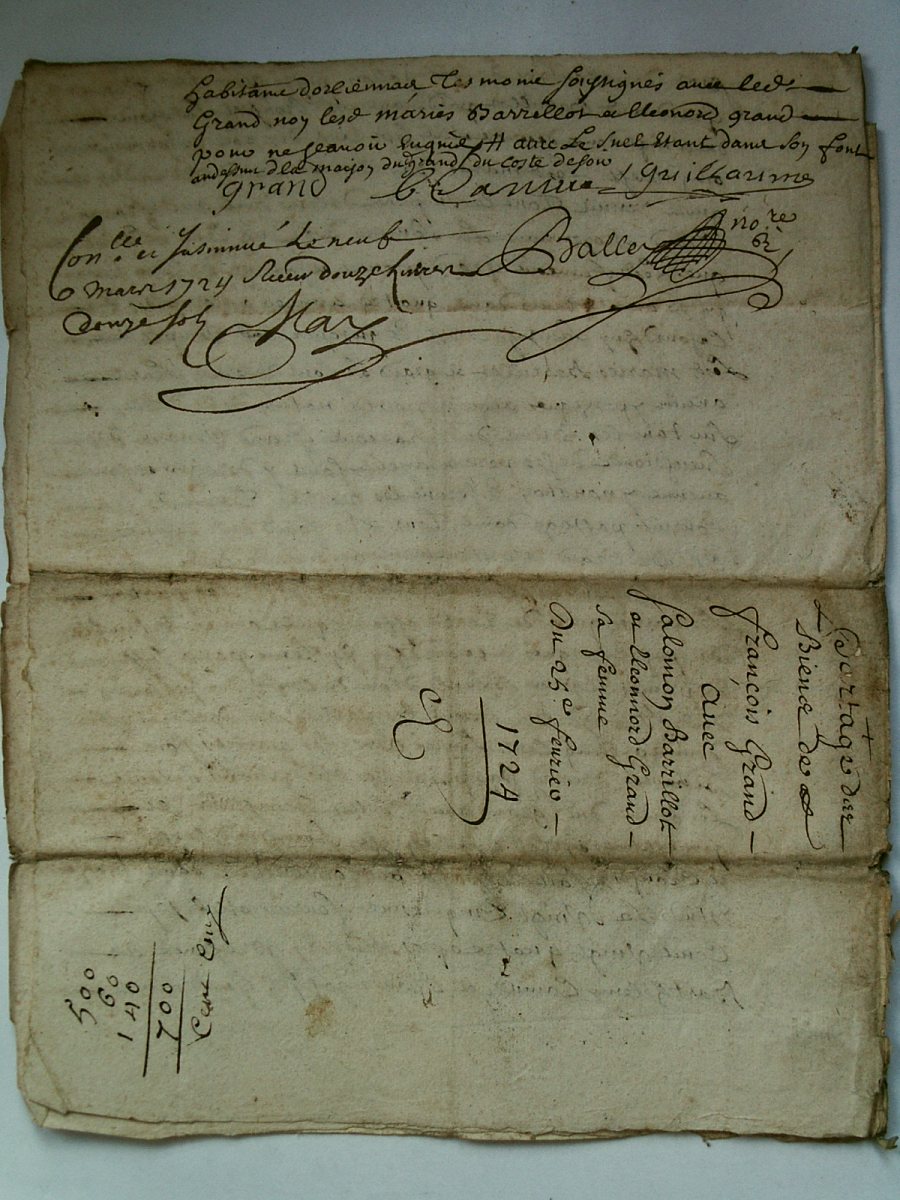 habitans dorliennac tesmoins soussignés avec led.
Grand noy lesd mariés Barrellot et Lleonord grand
pour ne scavoir enquis # avec Le suel Étant dans son font
audessus d la maison du grand du coste de sou
grand Guilhaume
Con.lle et Insinué le neuf
Mars 1724 Receu douze livres
douze sols May
Balley no.re
Partage dar
+ Biens de
françois Grand
avec
salomon Barrillot
et lleonnord Grand
sa femme
Du 25e feurier
1724
500
60
140
700